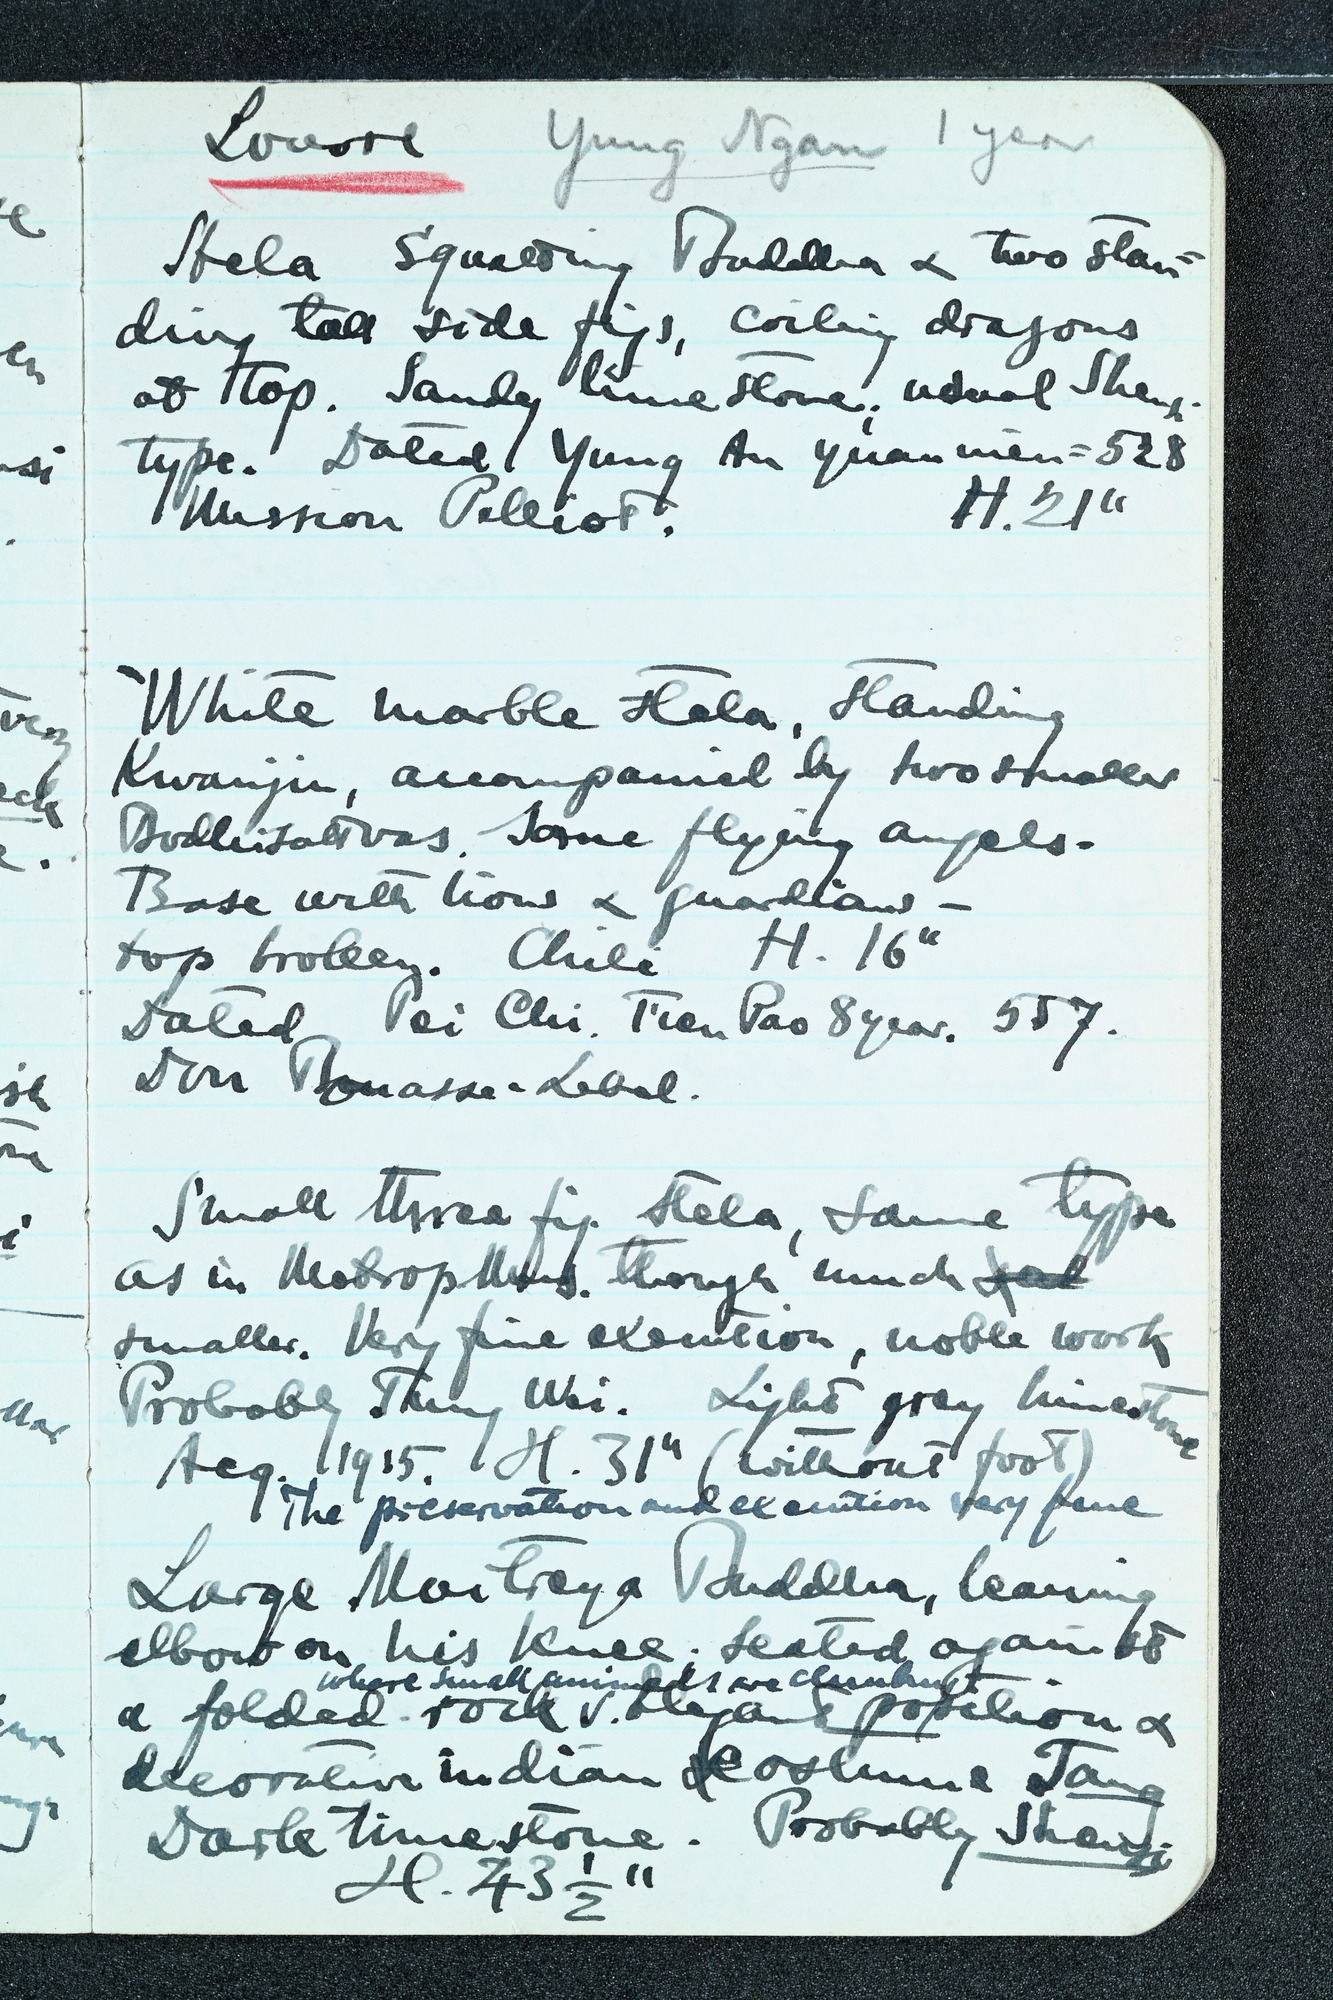 Louvre Yung Ngan 1 year
Stela Squatting Buddha & two stan=
ding tall side figs, coiling dragons
at top. Sandy limestone, usual Shens.
type. Dated Yung An yuan nien = 528
Mission Pelliot. H. 21"
White marble stela, standing
Kwanjin, accompanied by two smaller
Bodhisattvas. Some flying angels.
Base with lions & guardians –
top broken. Chili H. 16"
Dated Pei Chi. Tien Pao 8 year. 557.
Don Bouasse-Lebel.
Small three fig. stela, same type
as in Metrop Mus. though much
smaller. Very fine execution, noble work
Probably Tung Wei. Light grey limestone
Acq. 1915. H. 31" (without foot)
The preservation and execution very fine
Large Maitreya Buddha, leaning
elbow on his knee. Seated against
where small animals are climbing.
a folded rock v. elegant position &
decorative indian costume Tang
Dark limestone. Probably Shensi
H. 43 1/2"